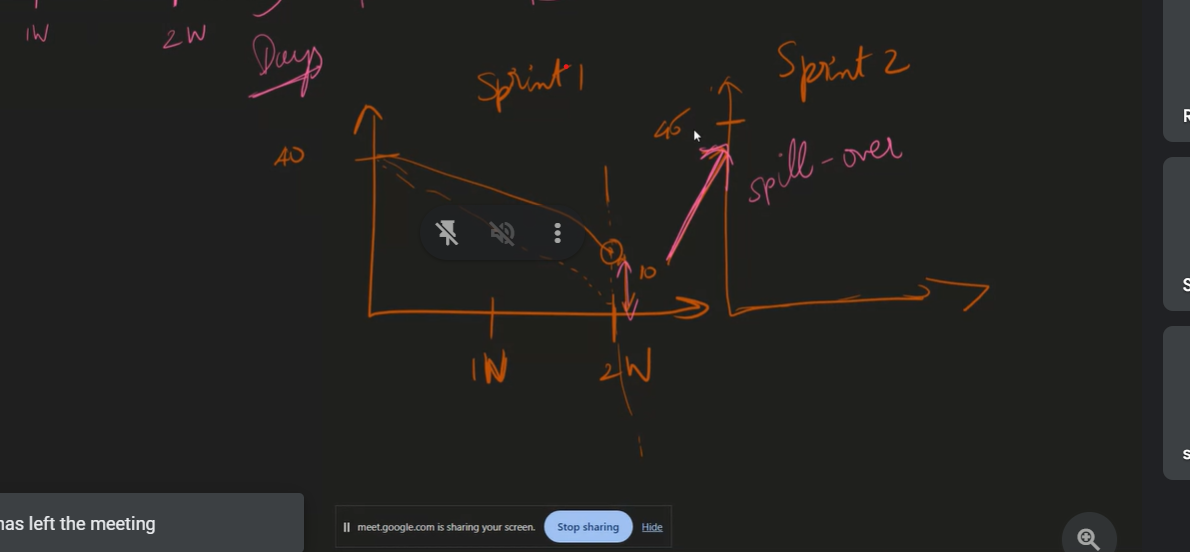 1W
2W
Days
Sprint 1
Sprint 2
40
spill-over
10
1W
2W
has left the meeting
meet.google.com is sharing your screen.
Stop sharing
Hide